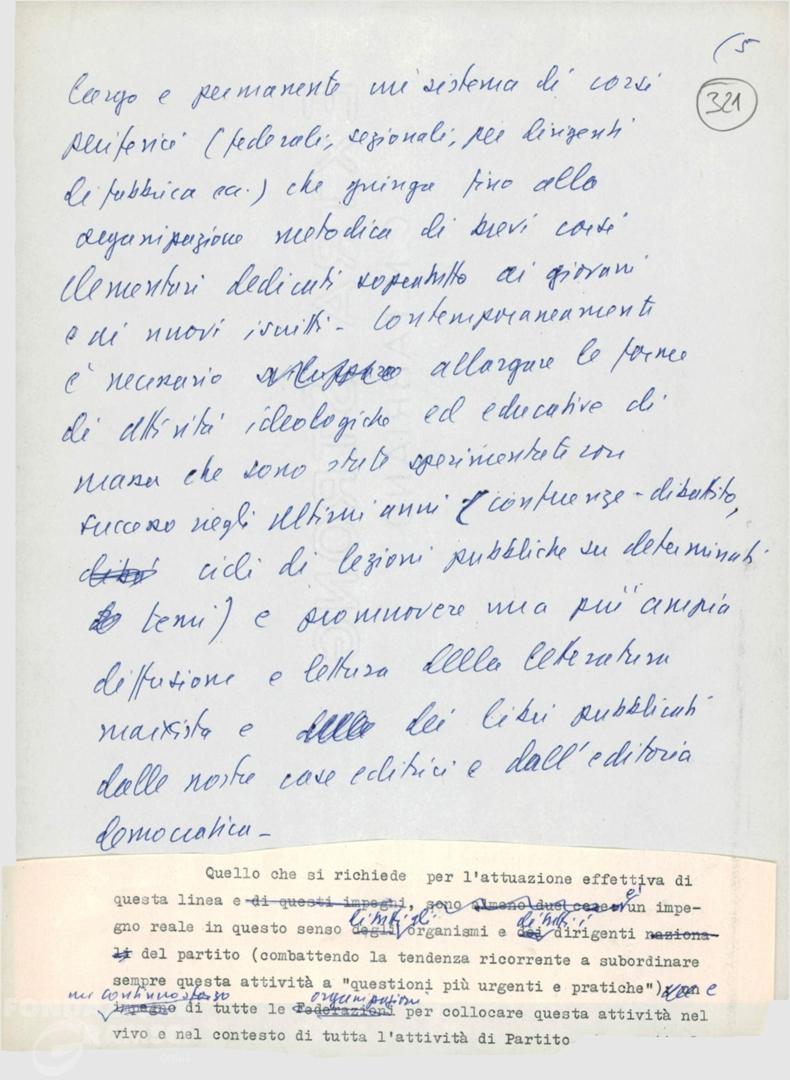 (5
321
largo e permanente un sistema di corsi
periferici (federali, sezionali, per dirigenti
di fabbrica ecc.) che giunga fino alla
organizzazione metodica di brevi corsi
elementari dedicati sopratutto ai giovani
e ai nuovi iscritti - Contemporaneamente
è necessario sviluppare allargare le forme
di attività ideologiche ed educative di
massa che sono state sperimentate con
successo negli ultimi anni (conferenze - dibattito,
cicli di lezioni pubbliche su determinati
temi) e promuovere una più ampia
diffusione e lettura della letteratura
marxista e dei libri pubblicati
dalle nostre case editrici e dall'editoria
democratica -
Quello che si richiede per l'attuazione effettiva di
questa linea e di questi impegni, sono almeno due cose: è un impe-
gno reale in questo senso degli di tutti gli organismi e dei di tutti i dirigenti naziona-
li del partito (combattendo la tendenza ricorrente a subordinare
sempre questa attività a "questioni più urgenti e pratiche") e
un continuo sforzo impegno di tutte le Federazioni organizzazioni per collocare questa attività nel
vivo e nel contesto di tutta l'attività di Partito